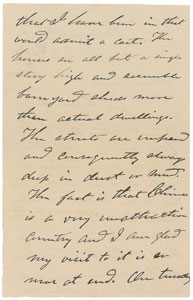 that I have been in that
would admit a cart. The
houses are all but a single
story high and resemble
barnyard sheds more
than actual dwellings.
The streets are unpaved
and consequently always
deep in dust or mud.
The fact is that China
is a very unattractive
country and I am glad
my visit to it is so
near at end. On Tuesday